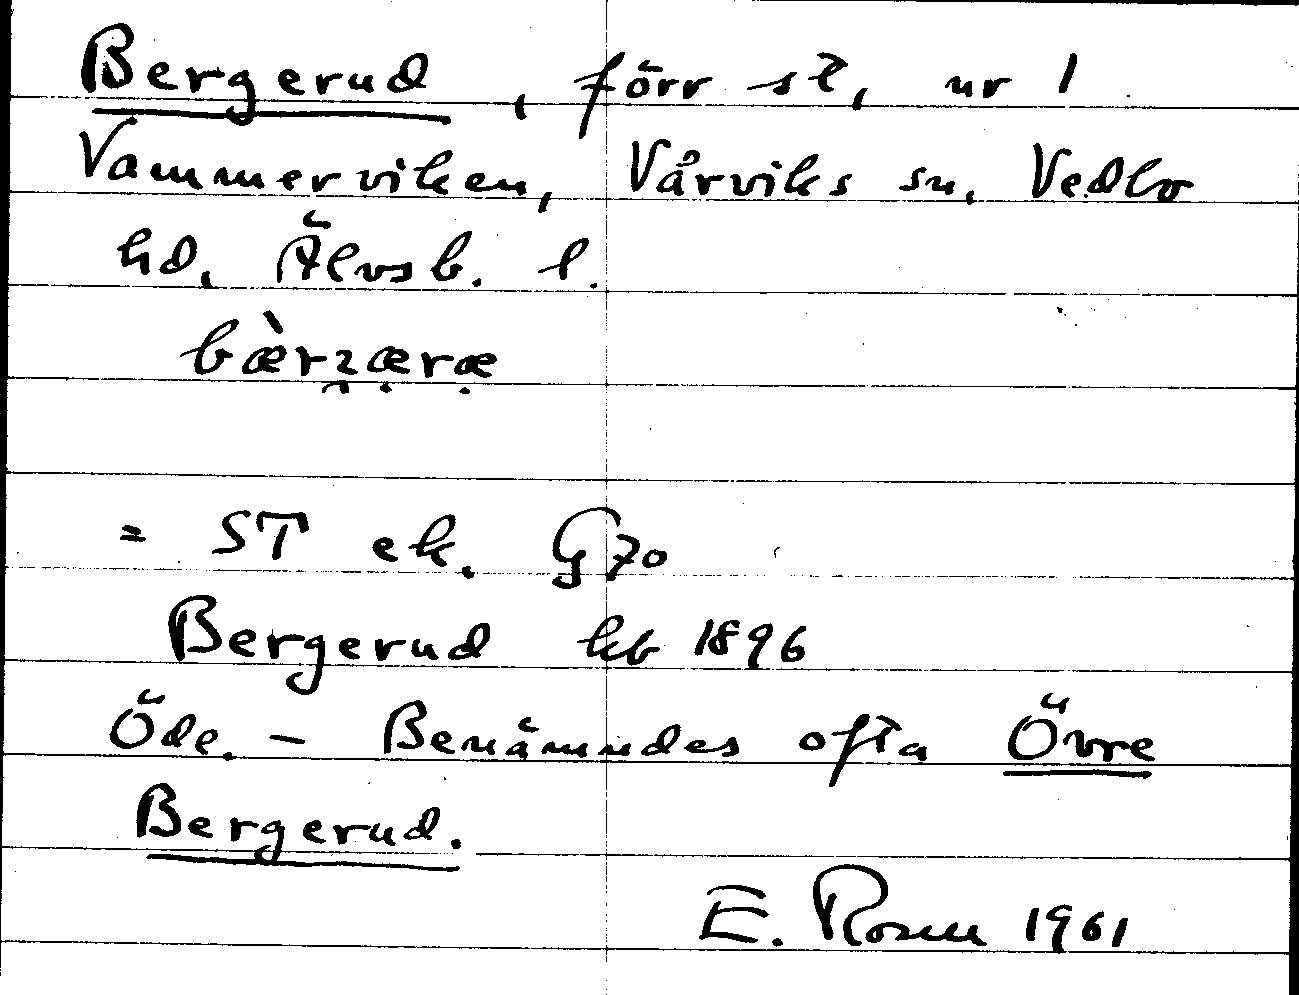 Bergerud, förr st, nr 1
Vammerviken, Vårviks sn. Vedbo
hd. Älvsb. l.
= ST ek. G70
Bergerud kb 1896
Öde. - Benämndes ofta Övre
Bergerud.
E. Rosen 1961